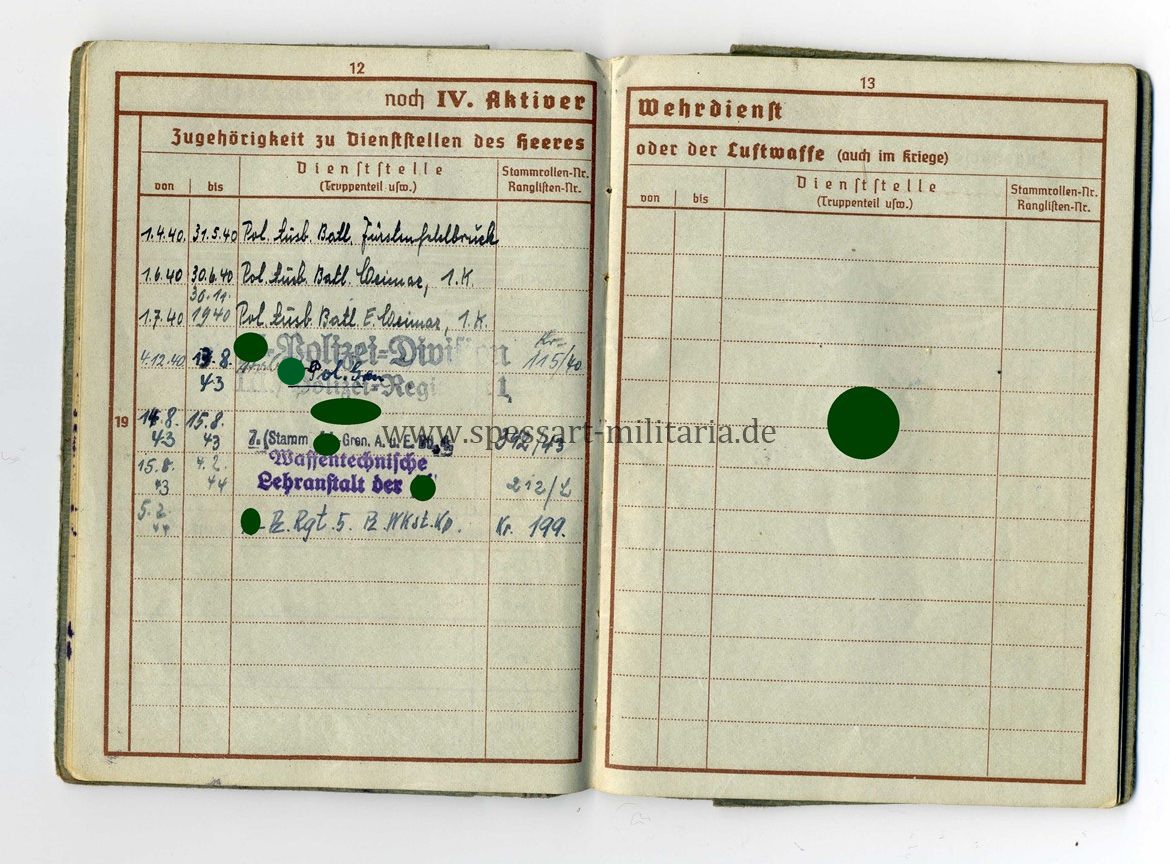 12
noch IV. Aktiver
Zugehörigkeit zu Dienststellen des Heeres
von bis Dienststelle (Truppenteil usw.) Stammrollen-Nr. Ranglisten-Nr.
1.4.40 31.5.40 Pol. Ausb. Batl. Fürstenfeldbruck
1.6.40 30.6.40 Pol. Ausb. Batl. Weimar, 1.K.
1.7.40 30.11. 1940 Pol. Ausb. Batl. E. Weimar, 1.K.
4.12.40 13.8. 43 -Polizei-Division Kr- 115/40
Pol. Polizei-Regi 1
19
14.8. 43 15.8. 43 7. (Stamm Gren. A. u. E. 392/43
15.8. 43 4.2. 44 Waffentechnische
Lehranstalt der 212/L
5.2. 44 Pz. Rgt. 5. Pz. Wkst. Kp. Kr. 199.
13
Wehrdienst
oder der Luftwaffe (auch im Kriege)
von bis Dienststelle (Truppenteil usw.) Stammrollen-Nr. Ranglisten-Nr.
www.spessart-militaria.de